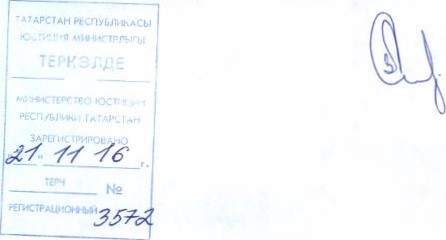 ТАТАРСТАН РЕСПУБЛИКАСЫ
ЮСТИЦИЯ МИНИСТРЛЫГЫ
ТЕРКӘЛДЕ
МИНИСТЕРСТВО ЮСТИЦИИ
РЕСПУБЛИКИ ТАТАРСТАН
ЗАРЕГИСТРИРОВАНО
"21" 11 16 г.
ТЕРЧ №
РЕГИСТРАЦИОННЫЙ 3572